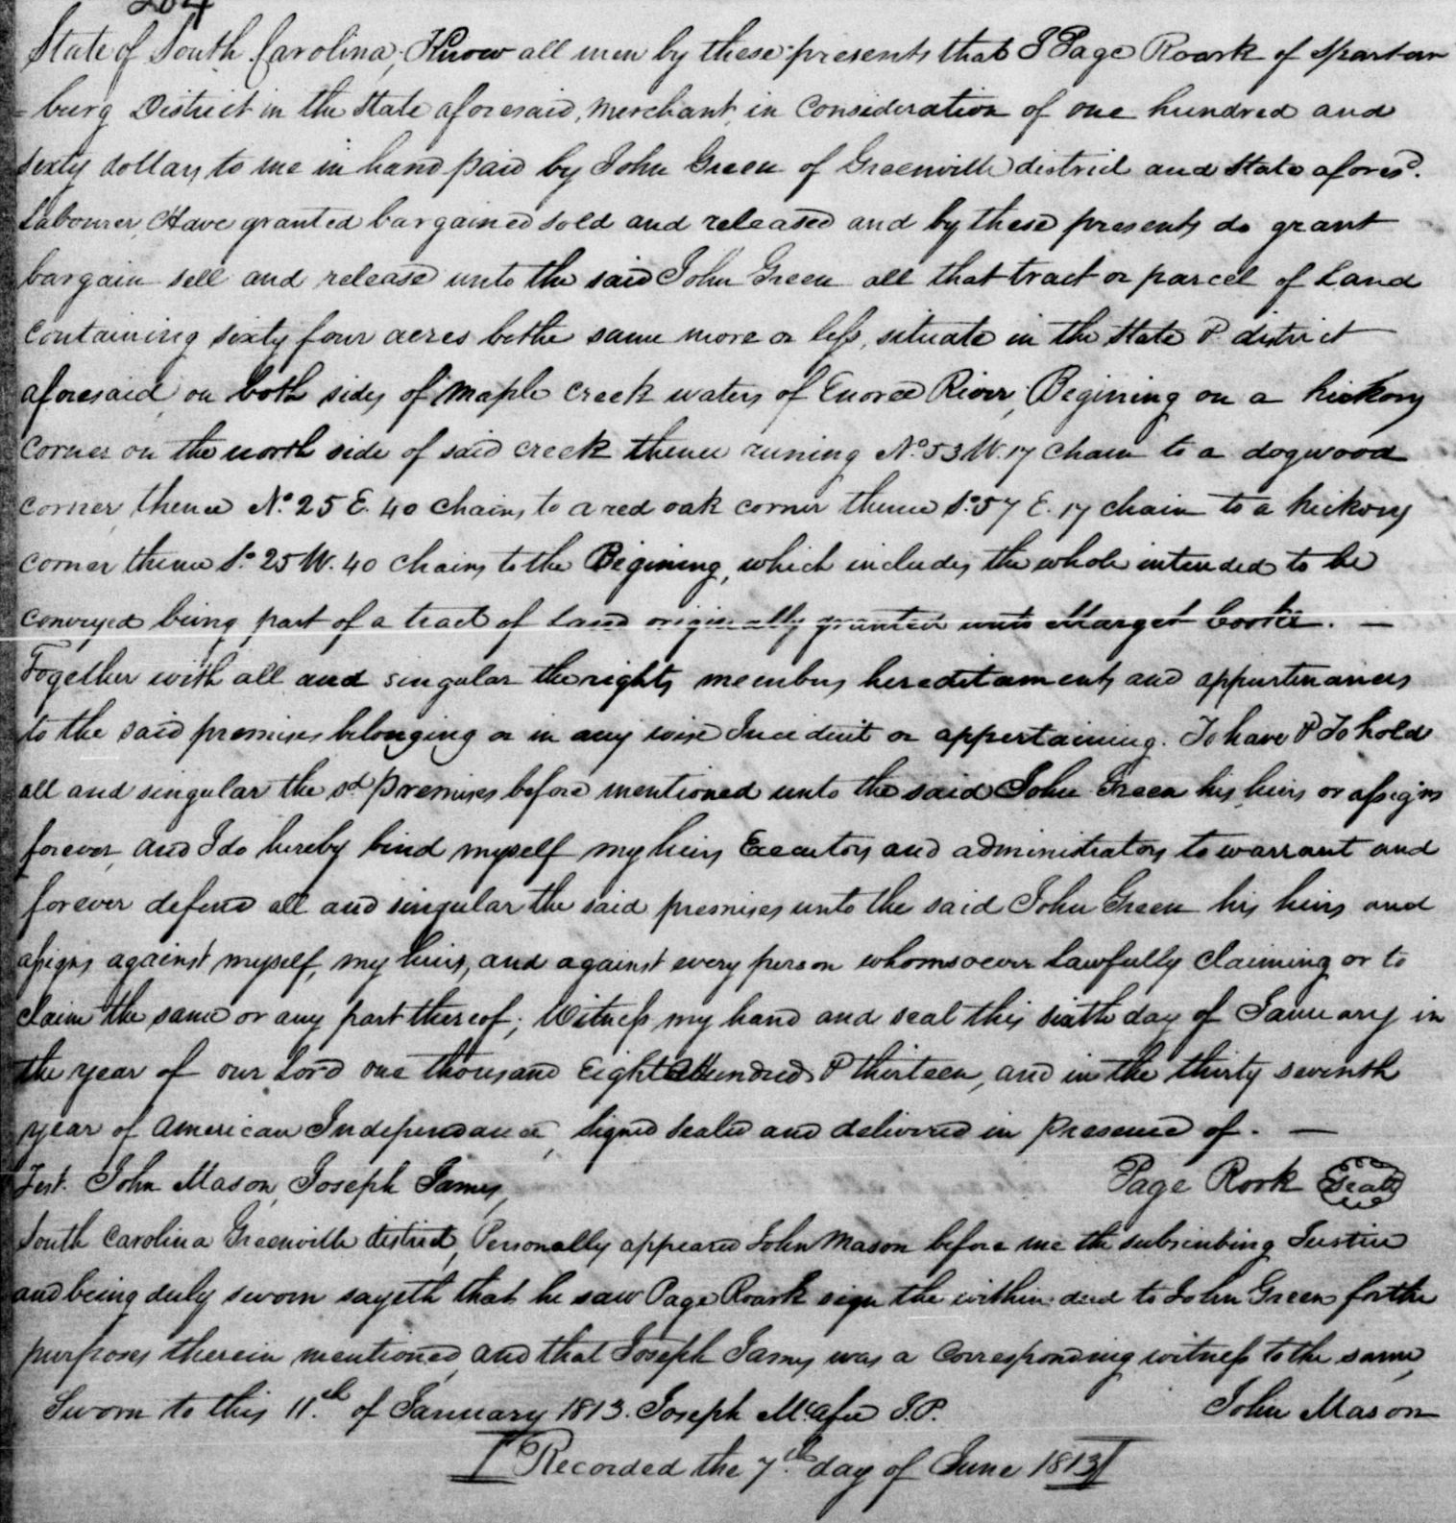 204
State of South Carolina, Know all men by these presents that I Page Roark of Spartan
=burg District in the State aforesaid, Merchant, in Consideration of one hundred and
Sixty dollars to me in hand paid by John Green of Greenville district and State aforesd.
Labourer, Have granted bargained sold and released and by these presents do grant
bargain sell and release unto the said John Green all that tract or parcel of Land
Containing sixty four acres be the same more or less, situate in the State & district
aforesaid, on both sides of Maple Creek waters of Enoree River, Begining on a hickory
Corner on the north side of said creek thence runing No. 53 W. 17 Chain to a dogwood
Corner, thence No. 25 E. 40 Chains, to a red oak corner thence So. 57 E. 17 chain to a hickory
Corner thence So. 25 W. 40 Chains to the Begining, which includes the whole intended to be
Conveyed being part of a tract of Land originally granted unto Marget . —
Together with all and singular the rights members hereditaments and appurtenances
to the said premises belonging or in any wise Incident or appertaining. To have & To hold
all and singular the sd. premises before mentioned unto the said John Green his heirs or assigns
forever, and I do hereby bind myself my heirs Executors and administrators to warrant and
forever defend all and singular the said premises unto the said John Green his heirs and
assigns against myself, my heirs, and against every person whomsoever Lawfully Claiming or to
Claim the same or any part thereof; Witness my hand and seal this sixth day of January in
the year of our Lord one thousand Eight Hundred & thirteen, and in the thirty seventh
year of American Independance, Signed Sealed and delivered in presence of. —
Test. John Mason, Joseph James, Page Rork Seal
South Carolina Greenville district, Personally appeared John Mason before me the subscribing Justice
and being duly sworn sayeth that he saw Page Roark sign the within deed to John Green for the
purposes therein mentioned, and that Joseph James was a Corresponding witness to the same,
Sworn to this 11th. of January 1813. Joseph McAfee J.P. John Mason
Recorded the 7th. day of June 1813